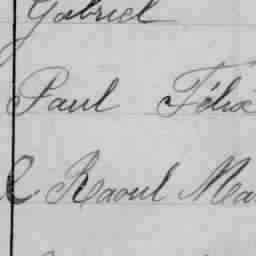 Gabriel
Paul Félix
Raoul Ma